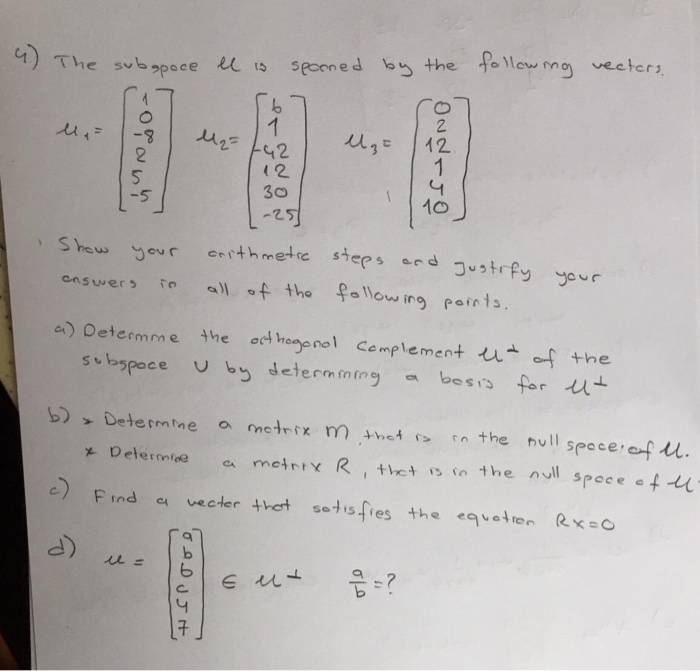 4) The subspace U is spanned by the following vectors.
u₁ = [1 0 -8 2 5 -5] u₂ = [6 1 -42 12 30 -25] u₃ = [0 2 12 1 4 10]
Show your arithmetic steps and Justify your
answers in all of the following points.
a) Determine the orthogonal complement U⊥ of the
subspace U by determining a basis for U⊥
b) * Determine a matrix M, that is in the null space of U.
* Determine a matrix R, that is in the null space of U
c) Find a vector that satisfies the equation Rx=0
d) u = [a b b c 4 7] ∈ U⊥ a/b = ?